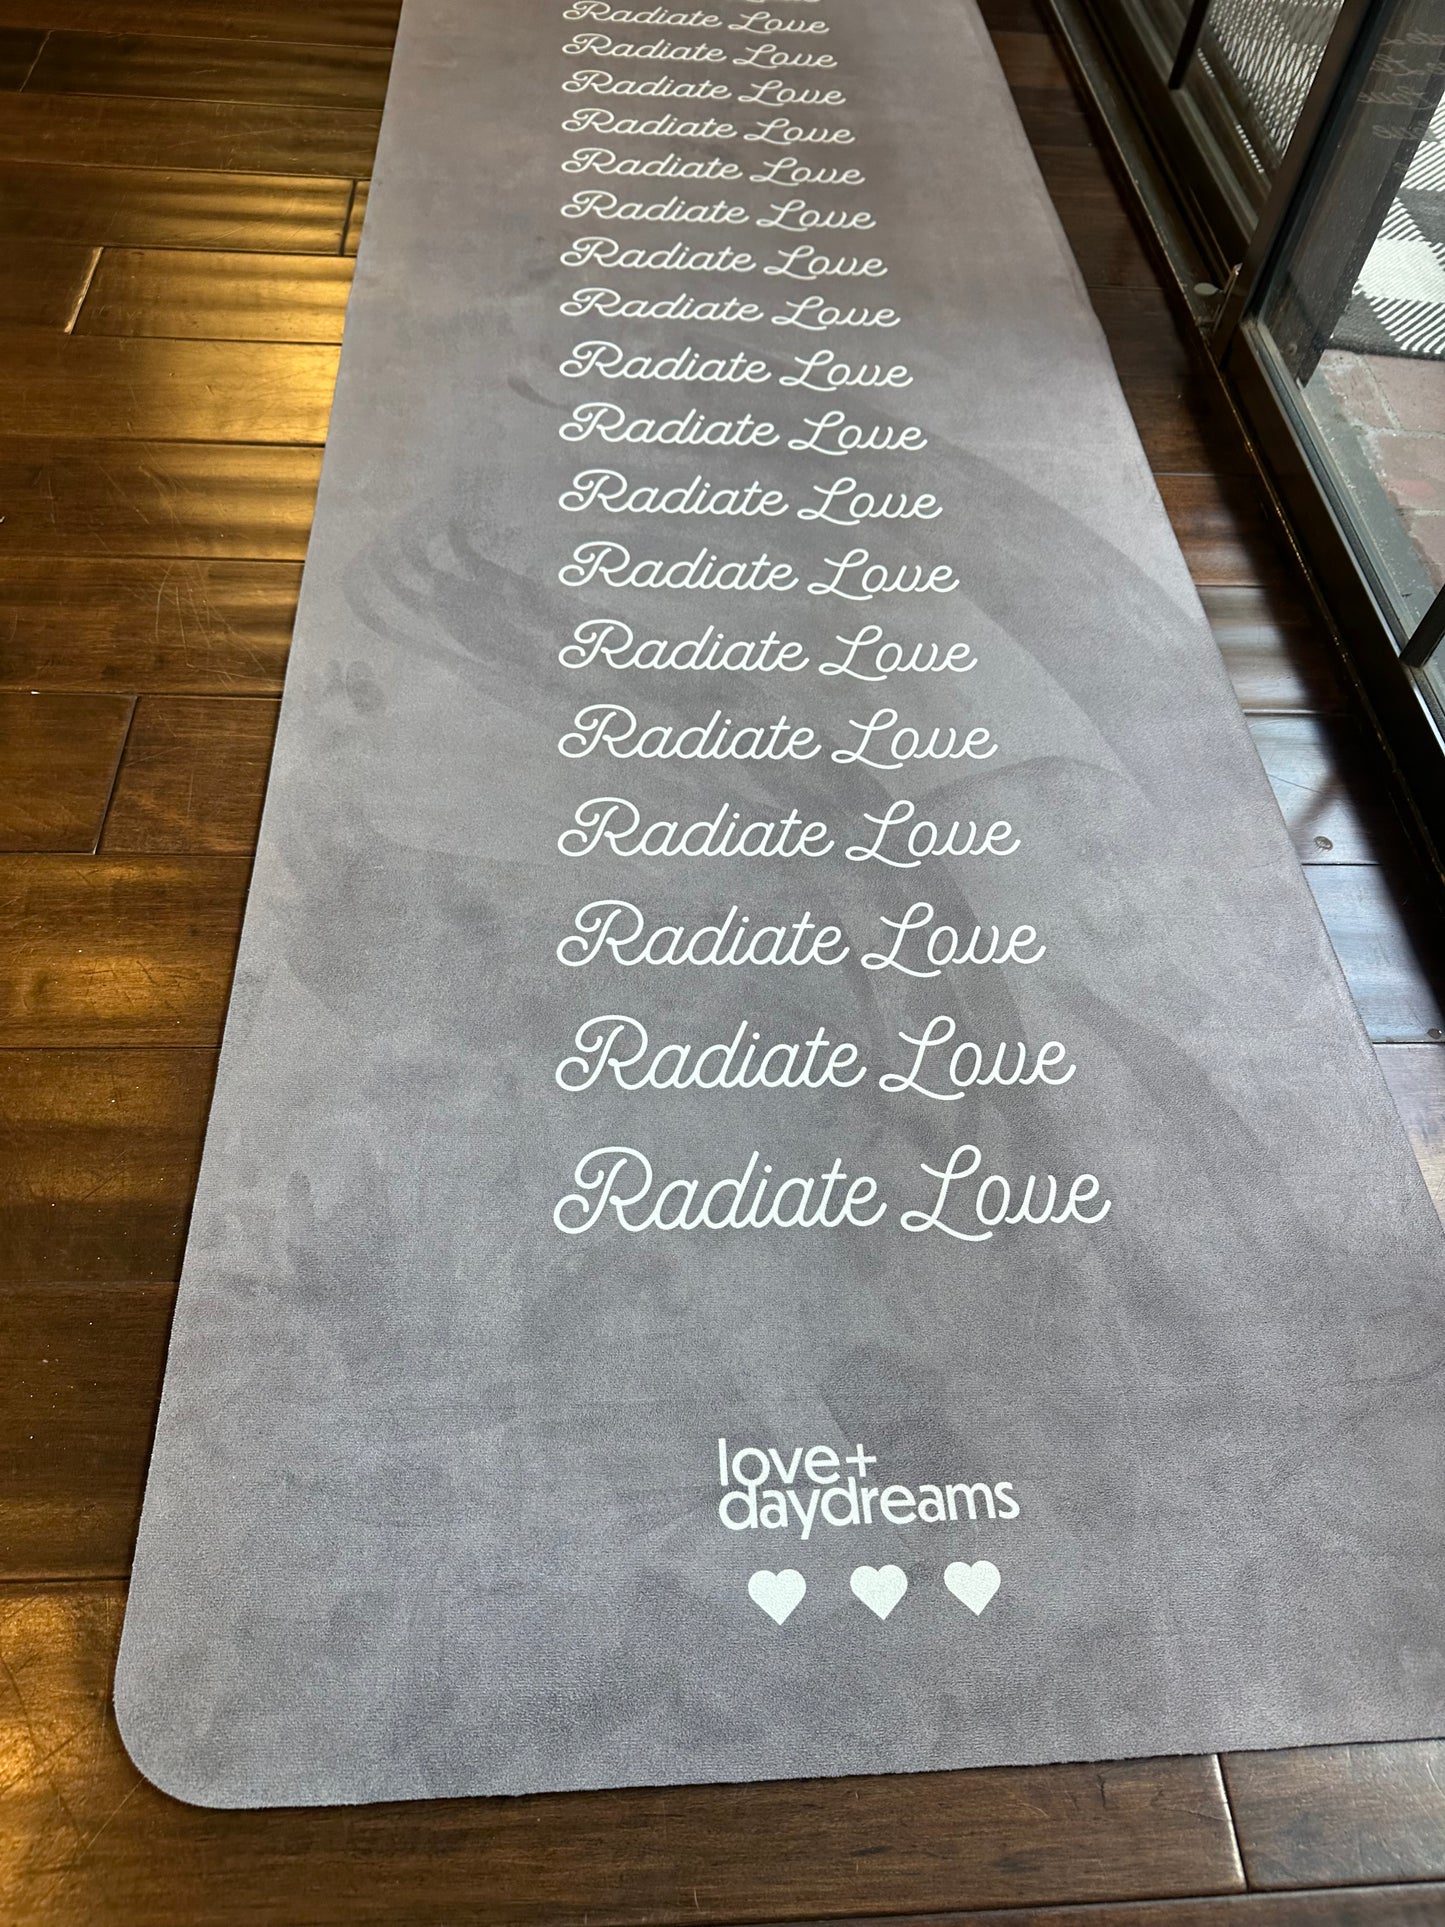 Radiate Love
Radiate Love
Radiate Love
Radiate Love
Radiate Love
Radiate Love
Radiate Love
Radiate Love
Radiate Love
Radiate Love
Radiate Love
Radiate Love
Radiate Love
Radiate Love
Radiate Love
Radiate Love
Radiate Love
Radiate Love
love+
daydreams